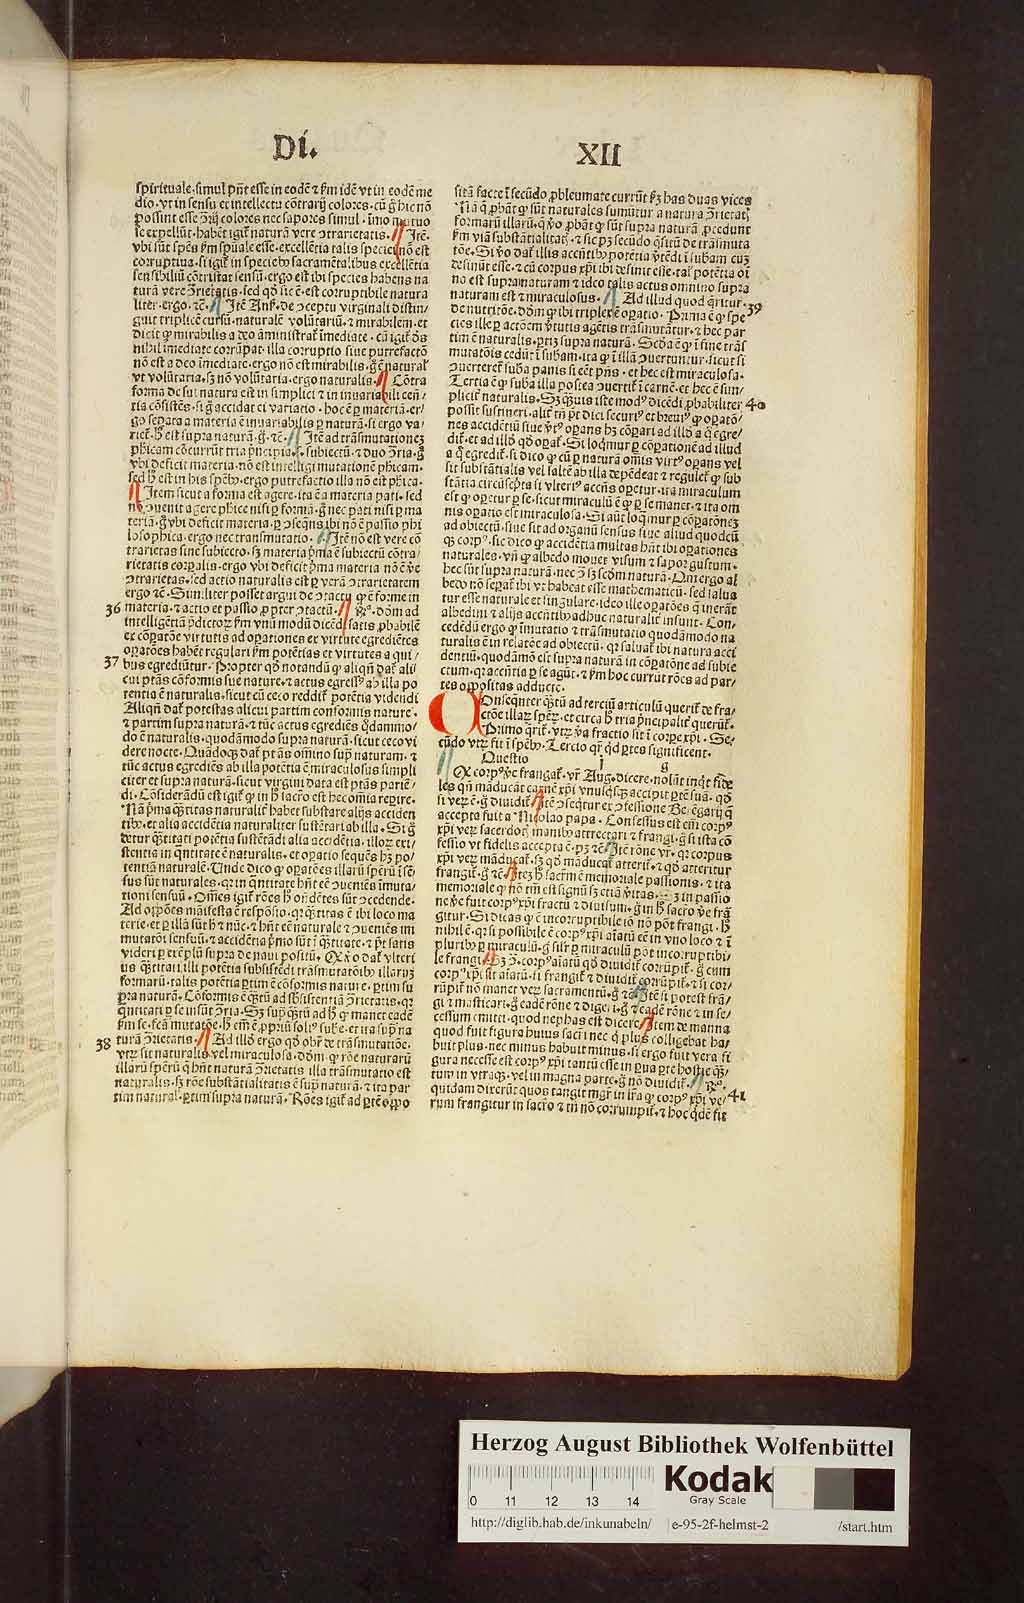 Di.
XII
spirituale·simul pn̄t esse in eodē ⁊ ꝑm idē vt in eodē me
dio·vt in sensu et intellectu cōtrarij colores·cū g̃ hic nō
possint esse ꝯrij colores nec sapores simul·īmo mutuo
se expellūt·habēt igit̃ naturā vere ꝯtrarietatis. Itē·
vbi sūt spēs ꝑm spūale esse·excellētia talis speciei nō est
corruptiua·si igit̃ in speciebꝰ sacramētalibus excellētia
sensibiliū cōtristat sensū·ergo est ibi species habens na
turā vere ꝯrietatis·sed qd̄ sic ē·est corruptibile natura
liter·ergo·⁊c̄. Itē Anſ·de ꝯceptu virginali distin
guit triplicē cursū·naturalē volūtariū·⁊ mirabilem·et
dicit ꝙ mirabilis a deo āministrat̃ īmediate·cū igit̃ ds̄
nihil īmediate corrūpat·illa corruptio siue putrefactō
nō est a deo īmediate·ergo nō est mirabilis·g̃ ē natural̃
vt volūtaria·sꝫ nō volūtaria·ergo naturalis. Cōtra
forma de sui natura est in simplici ⁊ in inuariabili eēn
tia cōsistēs·si g̃ accidat ei variatio·hoc ē ꝑ materiā·er
go seꝑata a materia ē inuariabilis ꝑ naturā·si ergo va
riet̃·hͦ est supra naturā·g̃·⁊c̄. Itē ad trāsmutationeꝫ
pͪicam cōcurrūt tria pͥncipia·s·subiectū·⁊ duo ꝯria·g̃
vbi deficit materia·nō est intelligi mutationē pͪicam·
sed hͦ est in his spēbꝰ·ergo putrefactio illa nō est pͪica.
Item sicut a forma est agere·ita ē a materia pati·sed
nō ꝯuenit agere pͪice nisi ꝑ formā·g̃ nec pati nisi ꝑ ma
teriā·g̃ vbi deficit materia·ꝑ ꝯseq̄ns ibi nō ē passio phi
losophica·ergo nec transmutatio. Itē nō est vere cō
trarietas sine subiecto·sꝫ materia pͥma ē subiectū cōtra
rietatis corꝑalis·ergo vbi deficit pͥma materia nō ē ve
ꝯtrarietas·sed actio naturalis est ꝑ verā ꝯtrarietatem
ergo ⁊c̄. Similiter posset argui de ꝯtactu ꝙ ē forme in
36 materia·⁊ actio et passio ꝓpter ꝯtactū. ℟ͦ·dōm ad
intelligētiā pͥdictoꝝ ꝑm vnū modū dicēdi satis ꝓbabilē
ex cōꝑatōe virtutis ad oꝑationes et virtute egrediētes
oꝑatōes habēt regulari ꝑm potētias et virtutes a qui
37 bus egrediūtur. Propter qd̄ notandū ꝙ aliqn̄ dat̃ ali
cui ptās cōformis sue nature·⁊ actus egressꝰ ab illa po
tentia ē naturalis·sicut cū ceco reddit̃ potētia videndi
Aliqn̄ dat̃ potestas alicui partim conformis nature·
⁊ partim supra naturā·⁊ tūc actus egrediēs qd̄ammō
do ē naturalis·quodāmodo supra naturā·sicut ceco vi
dere nocte. Quādoqꝫ dat̃ ptās omīno sup̄ naturam·⁊
tūc actus egrediēs ab illa potētia ē miraculosus simpli
citer et supra naturā·sicut virgini data est ptās parie
di. Considerādū est igit̃ ꝙ in hͦ sacro est hec omīa reꝑire.
Nā pͥma qͣtitas naturalit̃ habet substare alijs acciden
tibꝰ·et alia accidētia naturaliter sustētari ab illa. Si g̃
detur qͣtitati potētia sustētādi alia accidētia·illoꝝ exi
stentia in quītitate ē naturalis·et oꝑatio sequēs hꝫ po
tentiā naturalē. Unde dico ꝙ oꝑatōes illarū speꝝ ī sē
sus sūt naturales·qꝛ in quītitate hn̄t eē ꝯueniēs īmuta
tioni sensuū. Om̄es igit̃ rōes hͦ oñdētes sūt ꝯcedende.
Ad oppōes manifesta ē respōsio·qꝛ qͣtitas ē ibi loco ma
terie·et ꝑ illā sūt hͦ ⁊ nūc·⁊ hn̄t eē naturale ⁊ ꝯueniēs im
mutatōi sensuū·⁊ accidētia pͥmo sūt ī qͣtitate·⁊ pn̄t satis
videri ꝑ exēplū supra de naui positū. Ꝙ v̄o dat̃ vlteri
us qͣtitati illi potētia subsistēdi trāsmutatōibꝰ illaruꝫ
formarū·talis potētia ꝑtim ē cōformis nature·ꝑtim su
pra naturā. Cōformis ē qͣtū ad subsistentiā ꝯrietatis·qꝛ
quītitati ꝑ se insūt ꝯria. Sꝫ sup̄ qͣtū ad hͦ ꝙ manet eadē
ꝑm se·fcā mutatōe·hͦ em̄ ē ꝓpriū soliꝰ sube·et ita sup̄ na
38 turā ꝯrietatis. Ad illd̄ ergo qd̄ obr̄ de trāsmutatiōe·
vtꝝ sit naturalis vel miraculosa·dōm ꝙ rōe naturarū
illarū speꝝ ꝗ hn̄t naturā ꝯrietatis illa trāsmutatio est
naturalis·sꝫ rōe substātialitatis ē sup̄ naturā·⁊ ita par
tim natural·ꝑtim supra naturā. Rōes igit̃ ad ꝑtē oppo
sitā facte ī secūdo ꝓbleumate currūt ꝑꝫ has duas vices
Nā ꝗ ꝓbāt ꝙ sūt naturales sumūtur a natura ꝯrietatꝭ
formarū illarū·ꝗ v̄o ꝓbāt ꝙ sūt supra naturā ꝓcedunt
ꝑm viā substātialitatꝭ·⁊ sic pꝫ secūdo qͣsitū de trāsmuta
tōe. Si v̄o dat̃ illis accn̄tibꝰ potētia v̄tēdi ī subam cuꝫ
desinūt esse·⁊ cū corpus xp̄i ibi desinit esse·tal̃ potētia oī
no est supranaturam ⁊ ideo talis actus omnino supra
naturam est ⁊ miraculosus. Ad illud quod q̄ritur· 39
de nutritōe·dōm ꝙ ibi triplex ē oꝑatio. Prima ē ꝙ spe
cies ille ꝑ actōem v̄tutis agētis trāsmutātur·⁊ hec par
tim ē naturalis·ꝑtiꝫ supra naturā. Scd̄a ē ꝙ ī fine trās
mutatōis cedūt ī subam·ita ꝙ ī illā ꝯuertuntur·sicut si
ꝯuerteret̃ suba panis si eēt pn̄s·et hec est miraculosa.
Tertia ē ꝙ suba illa postea ꝯuertit̃ ī carnē·et hec ē sim
plicit̃ naturalis. Sꝫ qͣuis iste modꝰ dicēdi ꝓbabiliter 40
possit sustineri·alit̃ tn̄ pt̃ dici securiꝰ et breuiꝰ ꝙ oꝑatō
nes accidētiū siue v̄tꝰ oꝑans hꝫ cōꝑari ad illd̄ a q̄ egre
dit̃·et ad illd̄ qd̄ oꝑat̃. Si loqͣmur ꝑ cōꝑationē ad illud
a q̄ egredit̃·si dico ꝙ cū ꝑ naturā om̄is virtꝰ oꝑans vel
sit substātialis vel saltē ab illa depēdeat ⁊ regulet̃ ꝙ sub
stātia circūscp̄ta si vlteriꝰ accn̄s oꝑetur·ita miraculum
est ꝙ oꝑetur ꝑ se·sicut miraculū ē ꝙ ꝑ se manet·⁊ ita om
nis oꝑatio est miraculosa. Si aūt loqͣmur ꝑ cōꝑatōneꝫ
ad obiectū·siue sit ad organū sensus siue aliud quodcū
qꝫ corpꝰ·sic dico ꝙ accidētia multas hn̄t ibi oꝑationes
naturales·vn̄ ꝙ albedo mouet visum ⁊ sapor gustum·
hec sūt supra naturā·nec ꝯ sꝫ scd̄m naturā. Qm̄ ergo al
bedo nō seꝑat̃ ibi vt habeat esse mathematicū·sed salua
tur esse naturale et singulare·ideo ille oꝑatōes ꝗ inerāt
albedini ⁊ alijs accn̄tibꝰ adhuc naturalit̃ insunt. Con
cedēdū ergo ꝙ īmutatio ⁊ trāsmutatio quodāmodo na
turalis ē in relatōe ad obiectū·qꝛ saluat̃ ibi natura acci
dentiū·quodāmō est supra naturā in cōꝑatōne ad subie
ctum·qꝛ accn̄tia ꝑ se agūt·⁊ ꝑm hoc currūt rōes ad par
tes oppositas adducte.
Onseqn̄ter qͣtū ad terciū articulū querit̃ de fra
ctōe illaꝝ speꝝ·et circa hͦ tria pͥncipalit̃ querūt̃·
Primo q̄rit̃·vtꝝ v̄a fractio sit ī corꝑe xp̄i. Se
cūdo vtꝝ fit ī spēbꝰ. Tercio qͥ qd̄ ꝑtes significent.
Questio i g
Ꝙ corpꝰ v̄e frangat̃·vr̄ Aug·dicere·nolūt inqͥt fide
les qn̄ māducāt carnē xp̄i vnusqͥsqꝫ accipit ꝑtē suā·qd̄
si veꝝ ē·g̃ diuidit̃. Itē ꝯseqͥtur ex ꝯfessione Berēgarij ꝗ
accepta fuit a Nicolao papa. Confessus est em̄ corpꝰ
xp̄i veꝝ sacerdotꝭ manibꝰ attrectari ⁊ frangi·g̃ si ista cō
fessio vt fidelis accepta ē·pꝫ ⁊c̄. Itē rōne vr̄·qꝛ corpus
xp̄i veꝝ māducat̃·sꝫ qd̄ māducat̃ atterit̃·⁊ qd̄ atteritur
frangit̃·g̃ ⁊c̄. Itꝫ hͦ sacrm̄ ē memoriale passionis·⁊ ita
memoriale ꝙ nō tm̄ est signū sꝫ etiā v̄itas·sꝫ in passio
ne v̄e fuit corpꝰ xp̄i fractū ⁊ diuisum·g̃ in hͦ sacro v̄e frā
gitur. Si dicas ꝙ ē incorruptibile iō nō pōt frangi·hͦ
nihil ē·qꝛ si possibile ē corpꝰ xp̄i aīatū eē in vno loco ⁊ ī
pluribꝰ ꝑ miraculū·g̃ silr̄ ꝑ miraculū pōt incorruptibi
le frangi. Pꝫ ꝯ·corpꝰ aīatū qd̄ diuidit̃ corrūpit̃·g̃ cum
corpꝰ xp̄i sit aīatū·si frangit̃ ⁊ diuidit̃ corrūpit̃·⁊ si cor
rūpit̃ nō manet veꝝ sacramentū·g̃ ⁊c̄. Itē si potest frā
gi ⁊ masticari·g̃ eadē rōne ⁊ digeri·g̃ ⁊ eadē rōne ⁊ in se
cessum emitti·quod nephas est dicere. Item de manna
quod fuit figura huius sacrī nec ꝗ plus colligebat ha
buit plus·nec minus habuit minus·si ergo fuit vera fi
gura necesse est corpꝰ xp̄i tantū esse in ꝑua ꝑte hostie qͣ
tum in vtraqꝫ·vel in magna parte·g̃ nō diuidit̃. ℟ͦ·
quidam dixerūt quos tangit mgr̄ in lr̄a ꝙ corpꝰ xp̄i ve 41
rum frangitur in sacro ⁊ tn̄ nō corrumpit̃·⁊ hoc qͥdē sic
Herzog August Bibliothek Wolfenbüttel
0 11 12 13 14
Kodak
Gray Scale
http://diglib.hab.de/inkunabeln/ e-95-2f-helmst-2 /start.htm